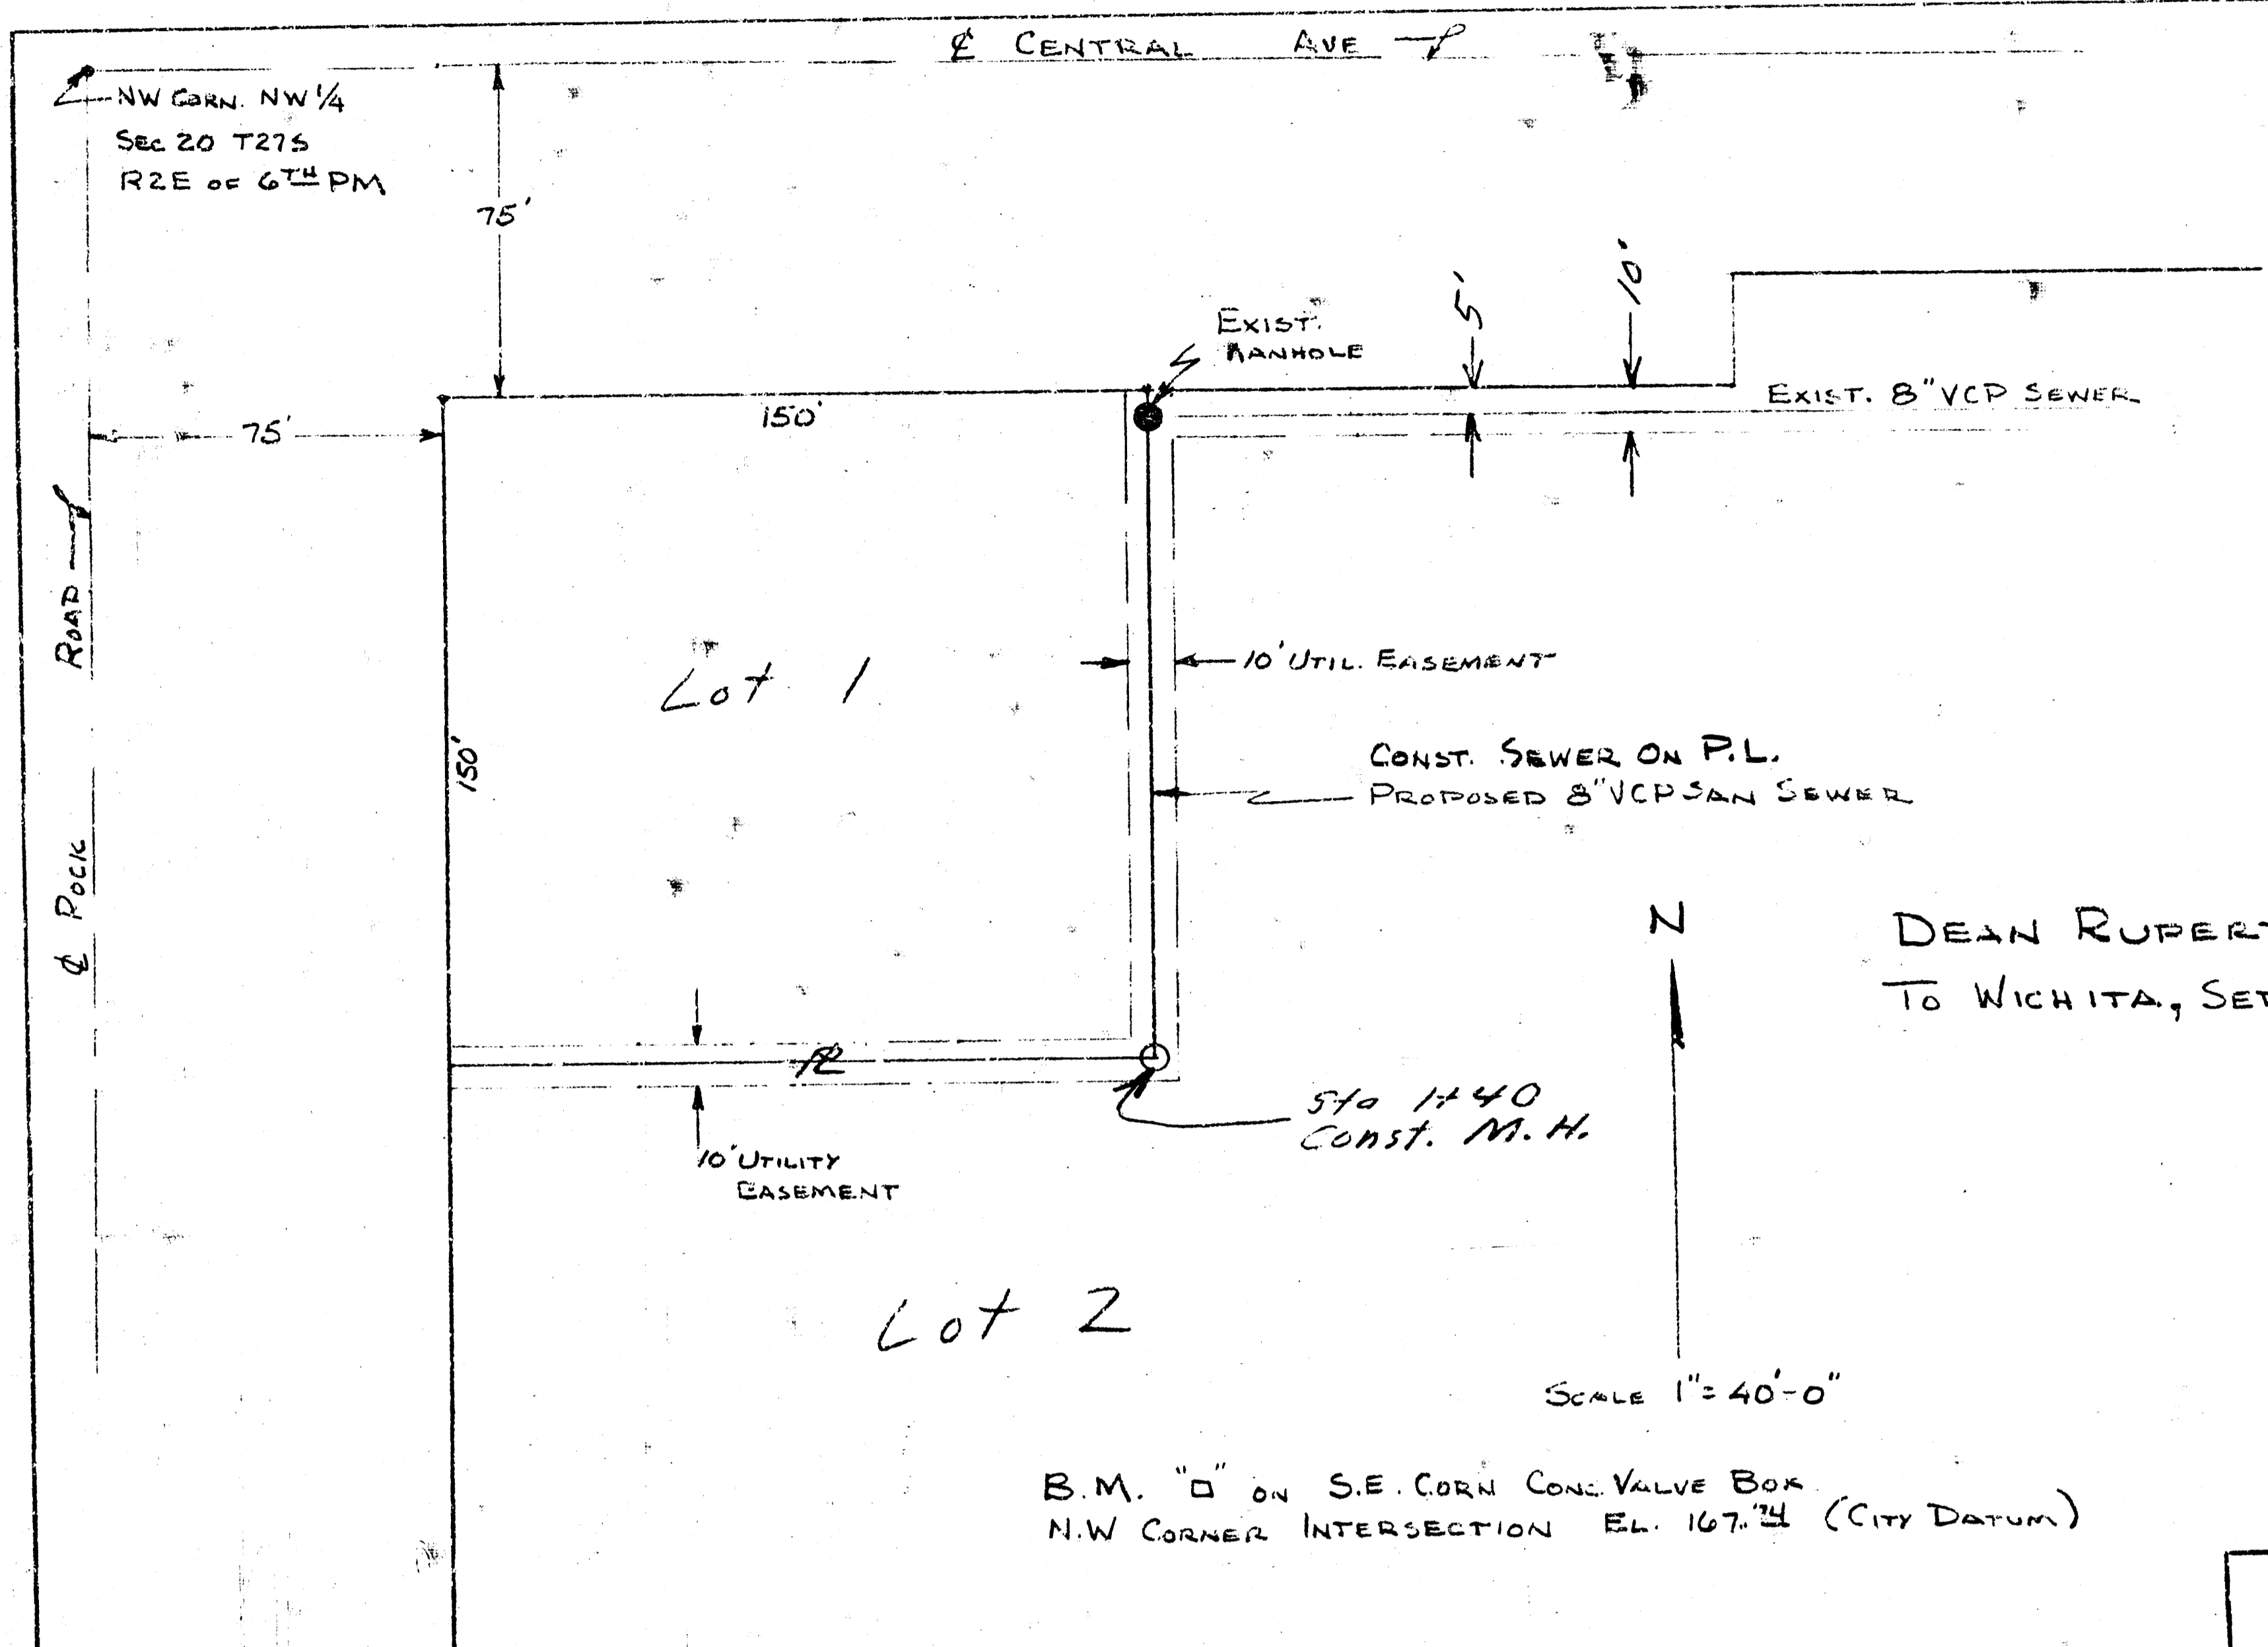 ℄ CENTRAL AVE
NW CORN. NW 1/4
SEC 20 T27S
R2E OF 6TH PM
75'
75'
150'
EXIST.
MANHOLE
5'
10'
EXIST. 8" VCP SEWER
℄ ROCK ROAD
Lot 1
150'
10' UTIL. EASEMENT
CONST. SEWER ON P.L.
PROPOSED 8" VCP SAN SEWER
N
DEAN RUPERT
TO WICHITA, SE
℄
Sta 1+40
Const. M.H.
10' UTILITY
EASEMENT
Lot 2
SCALE 1" = 40'-0"
B.M. "□" ON S.E. CORN CONC. VALVE BOX
N.W CORNER INTERSECTION EL. 167. (CITY DATUM)